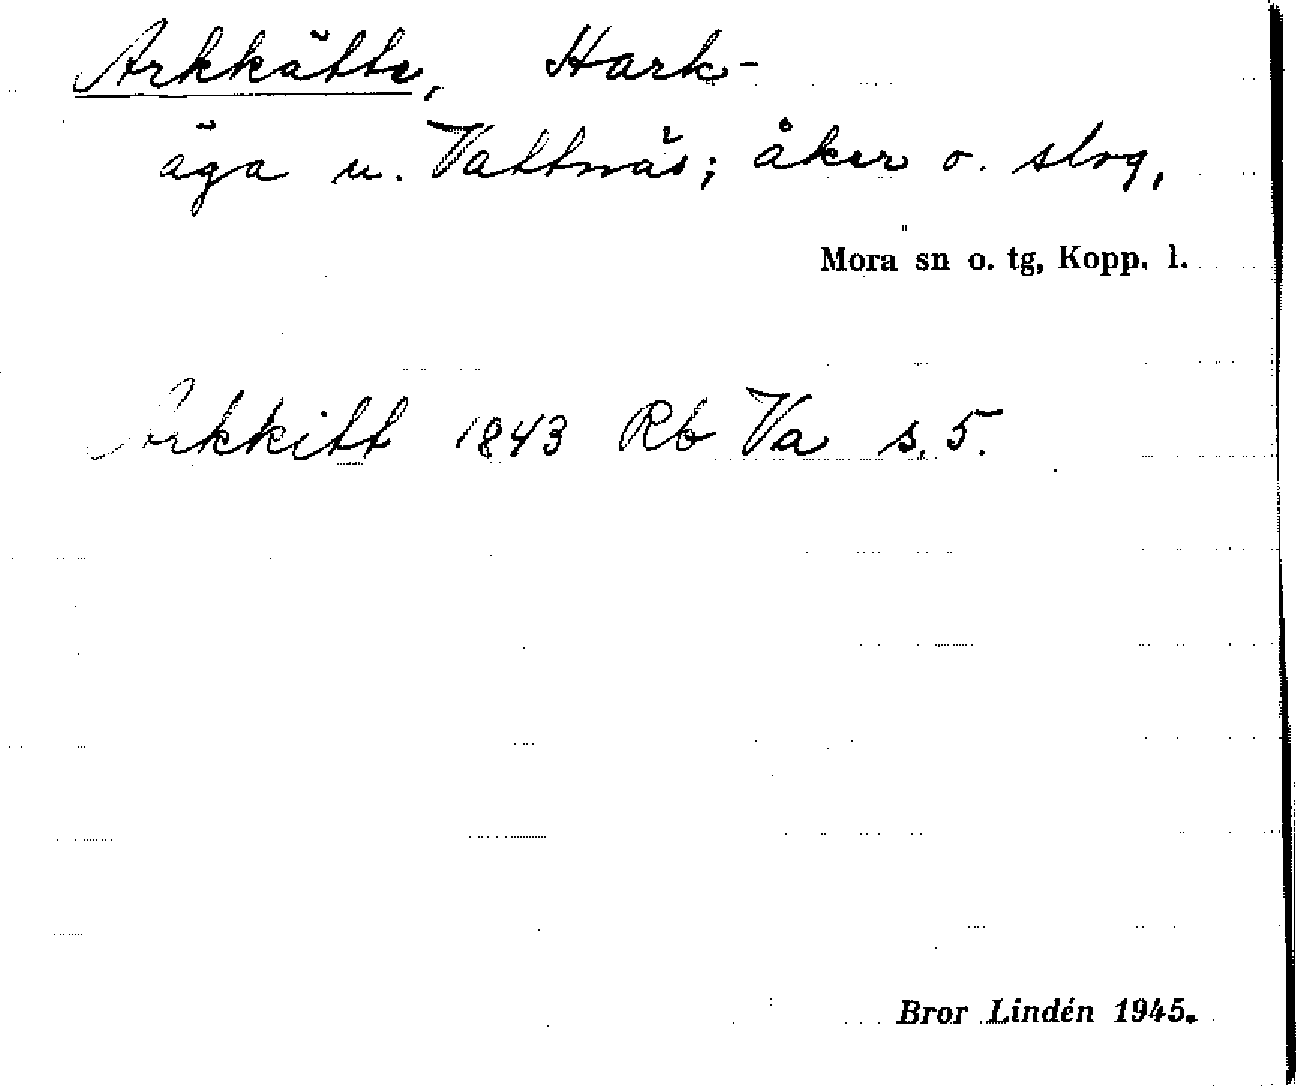 Arkkätte, Hark-
äga u. Vattnäs; åker o. slog,
Mora sn o. tg, Kopp. l.
Arkkitt 1843 Rb Va s. 5.
Bror Lindén 1945.